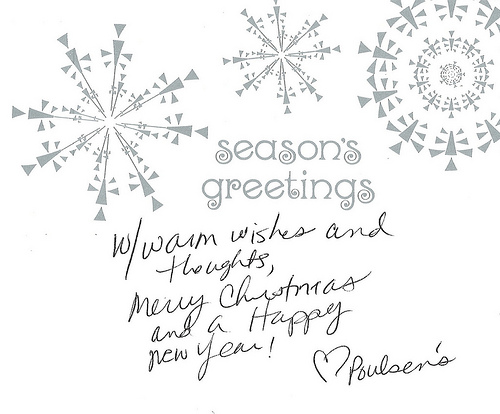 season's
greetings
w/warm wishes and
thoughts,
Merry Christmas
and a Happy
new year!
♡ Poulsen's